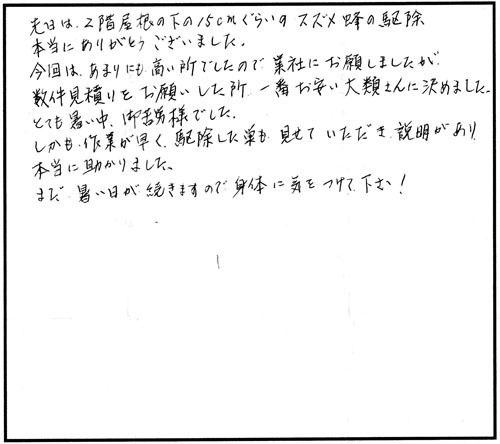 先日は、2階屋根の下の15cmぐらいのスズメ蜂の駆除
本当にありがとうございました。
今回は、あまりにも高い所でしたので業社にお願しましたが
数件見積りをお願いした所、一番お安い大類さんに決めました。
とても暑い中、御苦労様でした。
しかも、作業が早く、駆除した巣も、見せていただき、説明があり、
本当に助かりました。
まだ、暑い日が続きますので身体に気をつけて下さい！